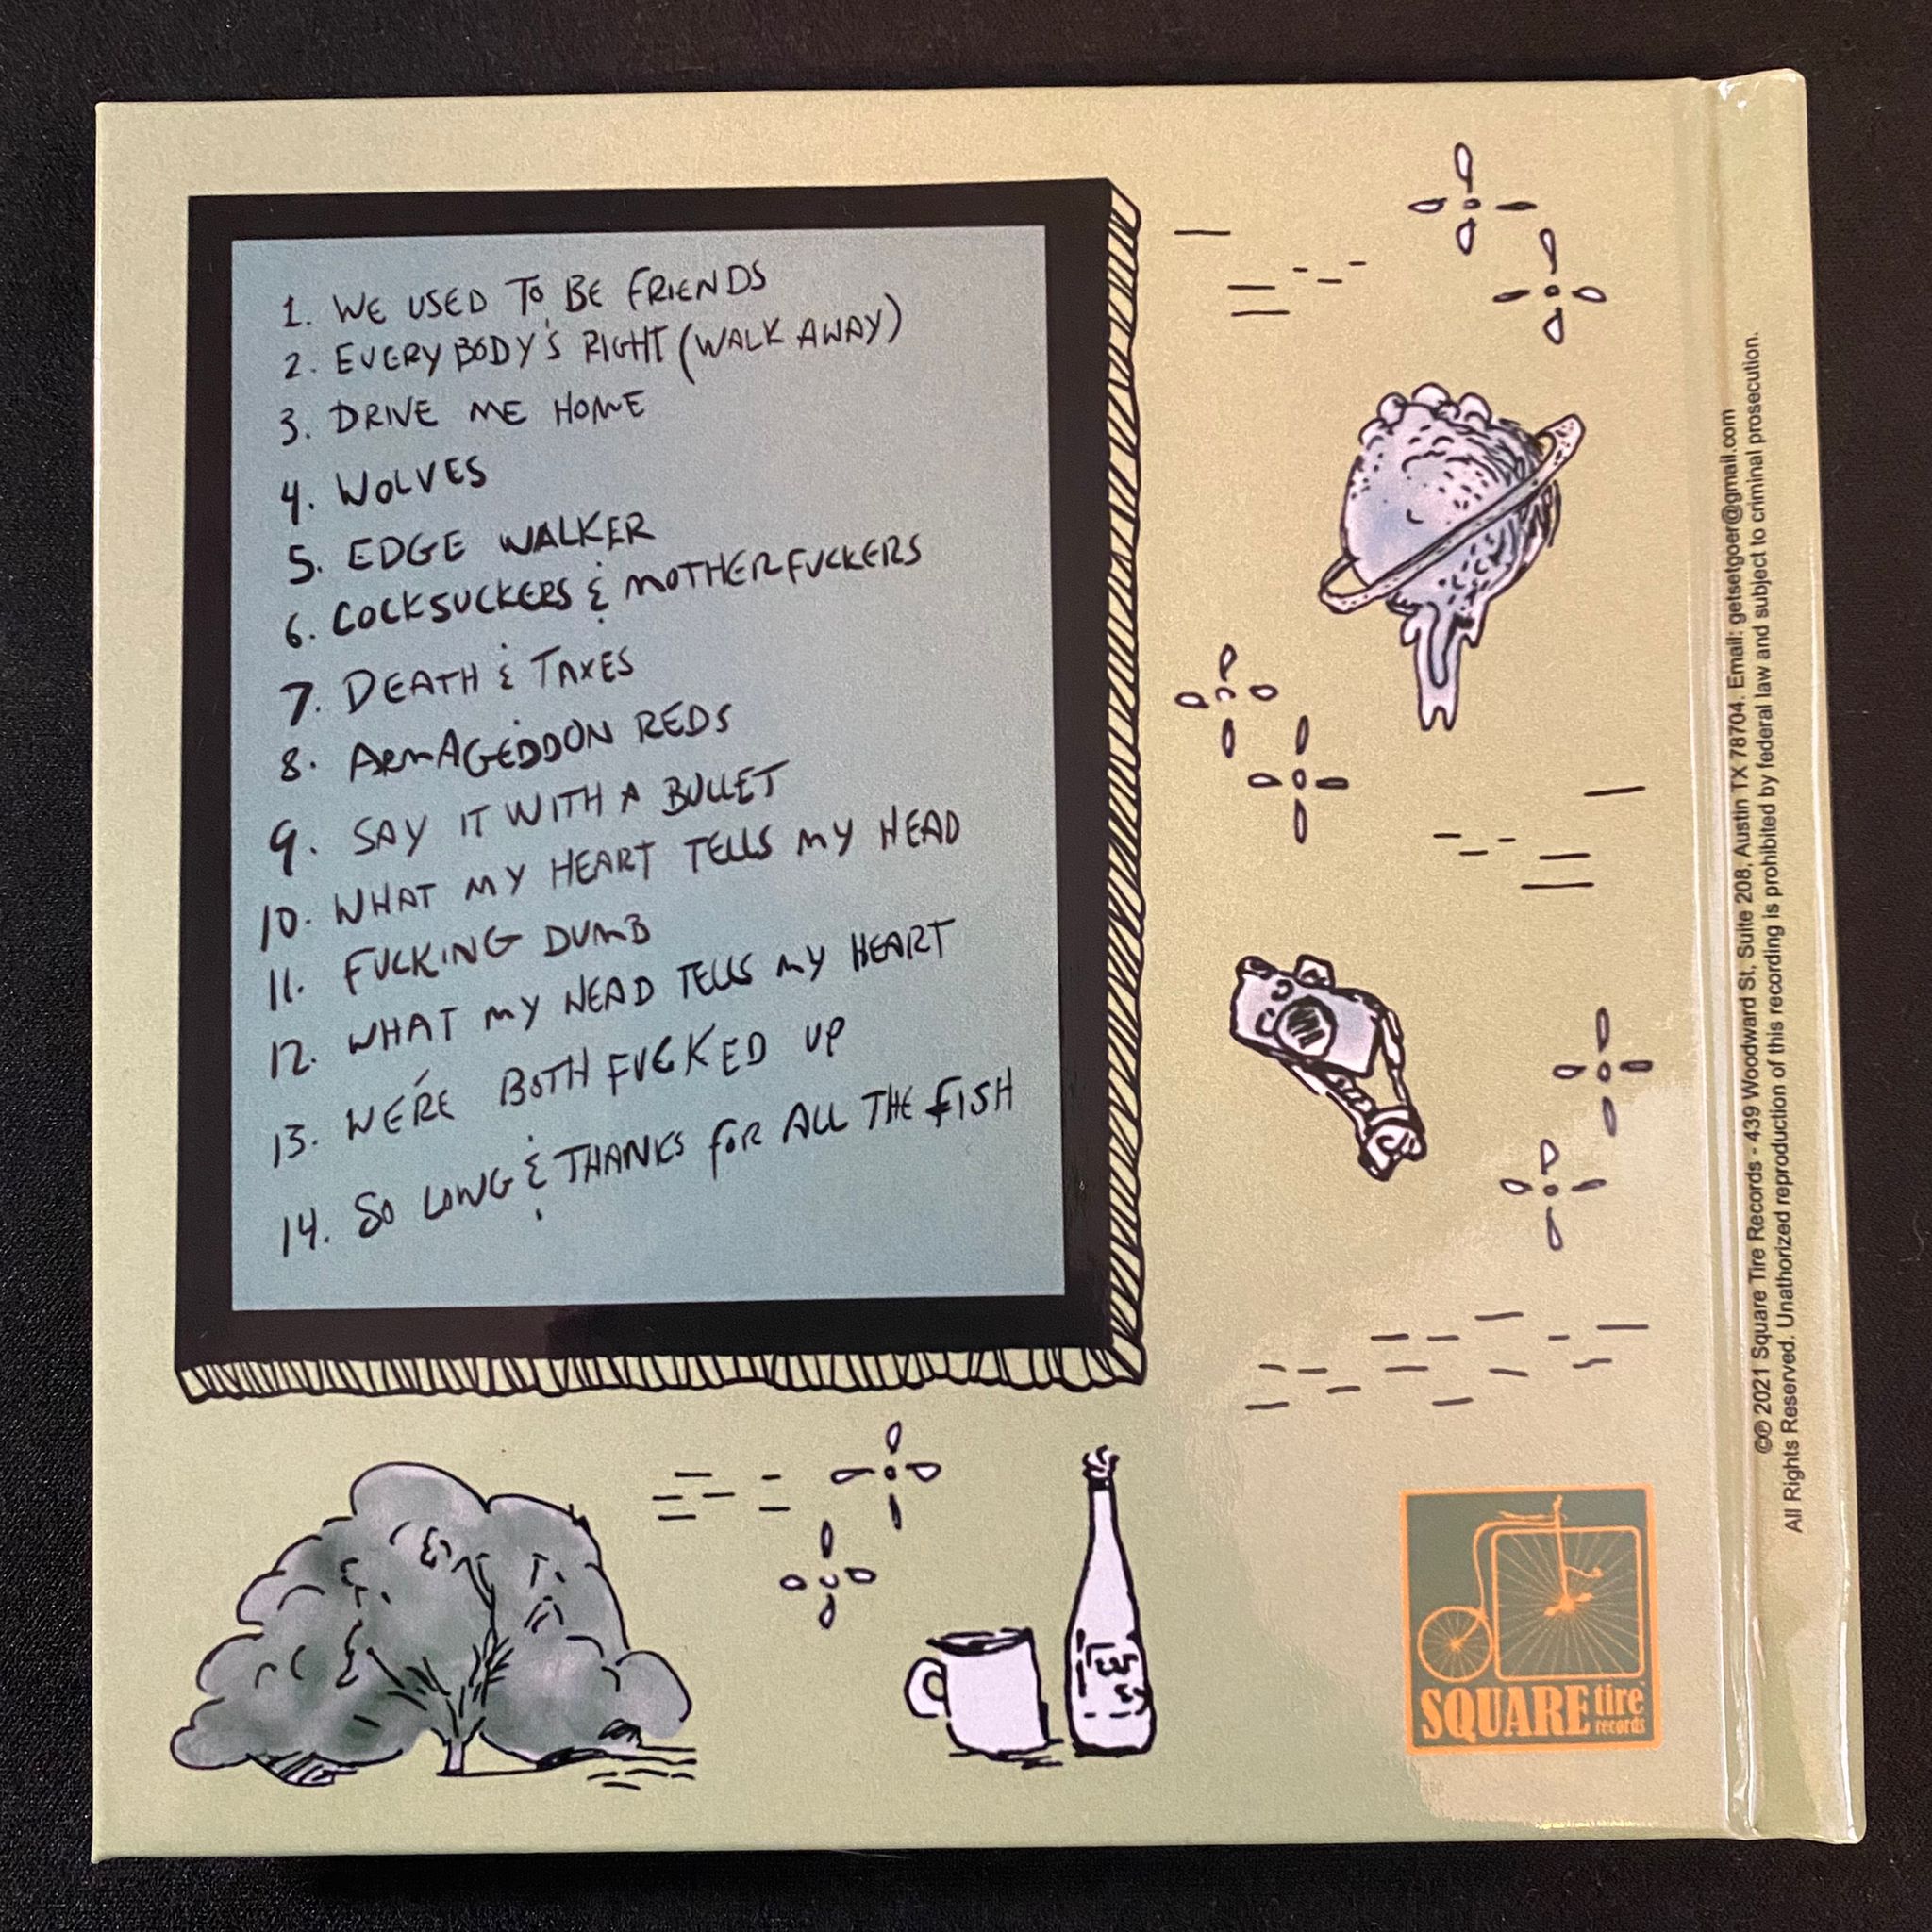 1. WE USED TO BE FRIENDS
2. EVERYBODY'S RIGHT (WALK AWAY)
3. DRIVE ME HOME
4. WOLVES
5. EDGE WALKER
6. COCKSUCKERS & MOTHERFUCKERS
7. DEATH & TAXES
8. ARMAGEDDON REDS
9. SAY IT WITH A BULLET
10. WHAT MY HEART TELLS MY HEAD
11. FUCKING DUMB
12. WHAT MY HEAD TELLS MY HEART
13. WE'RE BOTH FUCKED UP
14. SO LONG & THANKS FOR ALL THE FISH
SQUARE tire
records
©℗ 2021 Square Tire Records - 439 Woodward St, Suite 208, Austin TX 78704. Email: getsetgoer@gmail.com
All Rights Reserved. Unathorized reproduction of this recording is prohibited by federal law and subject to criminal prosecution.